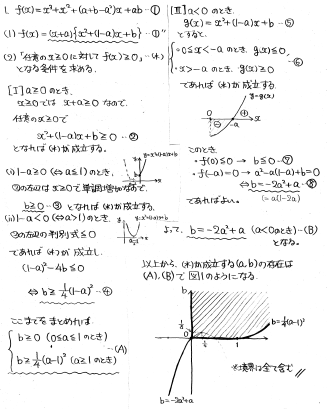 1. f(x)=x³+x²+(a+b-a²)x+ab …①
(1) f(x)=(x+a){x²+(1-a)x+b} …①''
(2) 「任意のx≧0に対してf(x)≧0」…(*)
となる条件を求める。
[I] a≧0のとき、
x≧0では x+a≧0 なので、
任意のx≧0で
x²+(1-a)x+b≧0 …②
となれば(*)が成立する。
(i) 1-a≧0 (⇔a≦1)のとき、
y=x²+(1-a)x+b
②の左辺はx≧0で単調増加なので、
b≧0 …③ となれば(*)が成立する。
(ii) 1-a<0 (⇔a>1)のとき、
y=x²+(1-a)x+b
②の左辺の判別式≦0
であれば(*)が成立し、
(1-a)²-4b≦0
⇔ b≧1/4(1-a)² …④
ここまでをまとめれば、
b≧0 (0≦a≦1のとき)
b≧1/4(a-1)² (a≧1のとき)
…(A)
[II] a<0のとき、
g(x)=x²+(1-a)x+b …⑤
とすると、
・0≦x<-a のとき、g(x)≦0
・x>-a のとき、g(x)≧0
…⑥
であれば(*)が成立する。
y=g(x)
⊖ -a ⊕ x
このとき、
・f(0)≦0 → b≦0 …⑦
・f(-a)=0 → a²-a(1-a)+b=0
⇔ b=-2a²+a …⑧
(=a(1-2a))
であればよい。
よって、b=-2a²+a (a<0のとき)…(B)
となる。
以上から、(*)が成立する(a,b)の存在は
(A),(B)で図1のようになる。
b
b=1/4(a-1)²
1/4
O
1
a
b=-2a²+a
※境界は全て含む